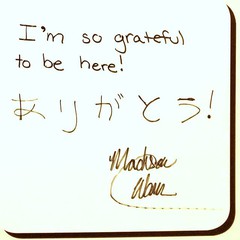 I'm so grateful
to be here!
ありがとう!
Madison